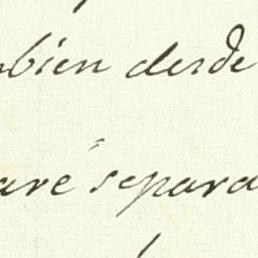 bien desde
aré separa